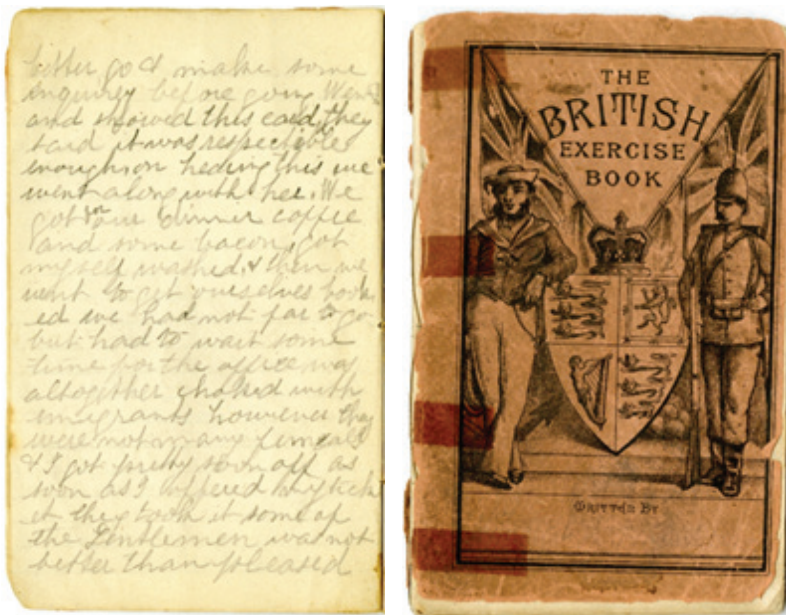 better go & make some
inquirey before going Went
and showed this card, they
said it was respectible
enough on heding this we
went along with her. We
got our dinner coffee
and some bacon, got
myself washed, & then we
went to get ourselves book
ed we had not far to go
but had to wait some
time for the office was
altogether choked with
emigrants however they
were not many femeals
& I got pretty soon off as
soon as I offered my tick
et they took it some of
the Gentlemen was not
better than pleased
THE
BRITISH
EXERCISE
BOOK
WRITTEN BY